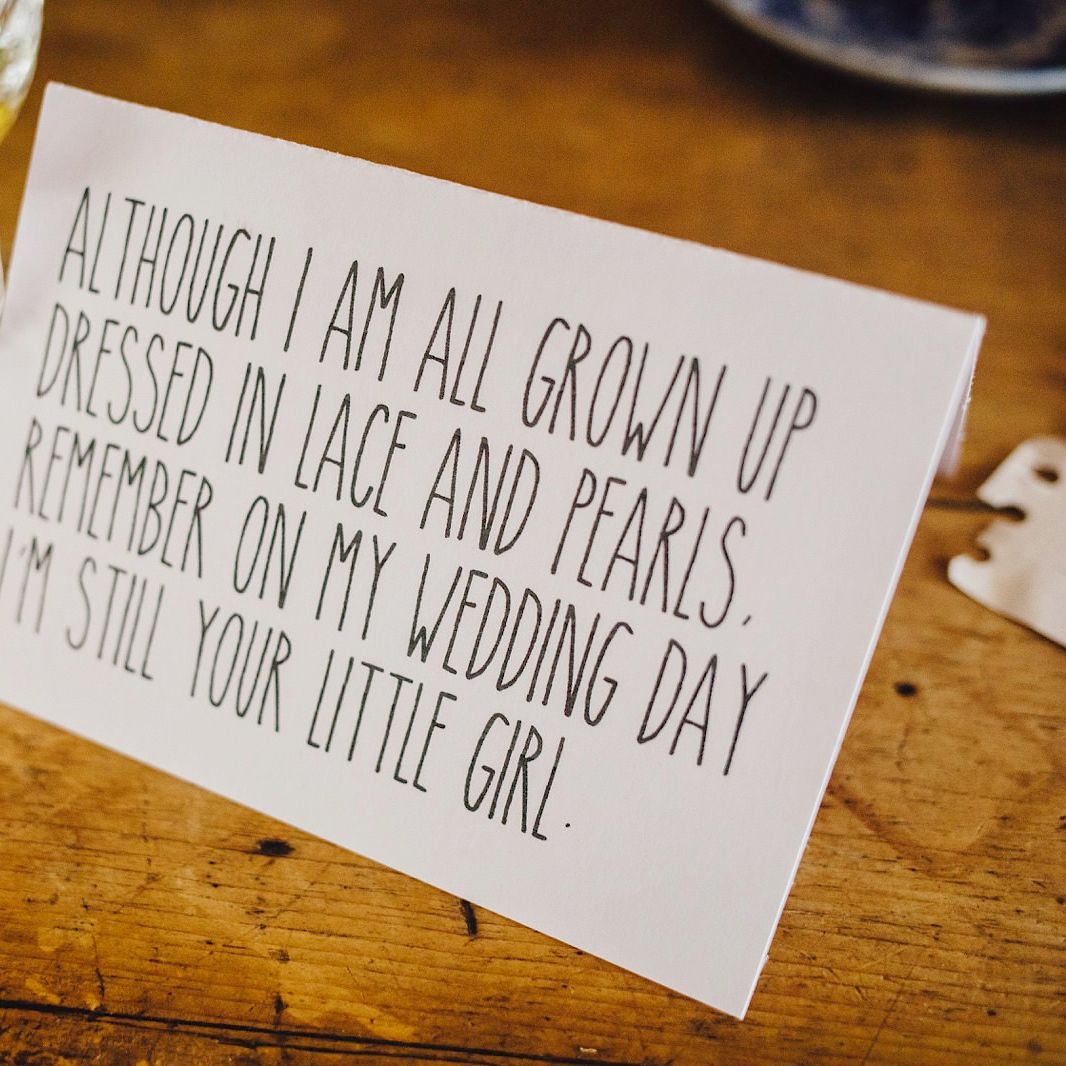 ALTHOUGH I AM ALL GROWN UP
DRESSED IN LACE AND PEARLS,
REMEMBER ON MY WEDDING DAY
I'M STILL YOUR LITTLE GIRL.